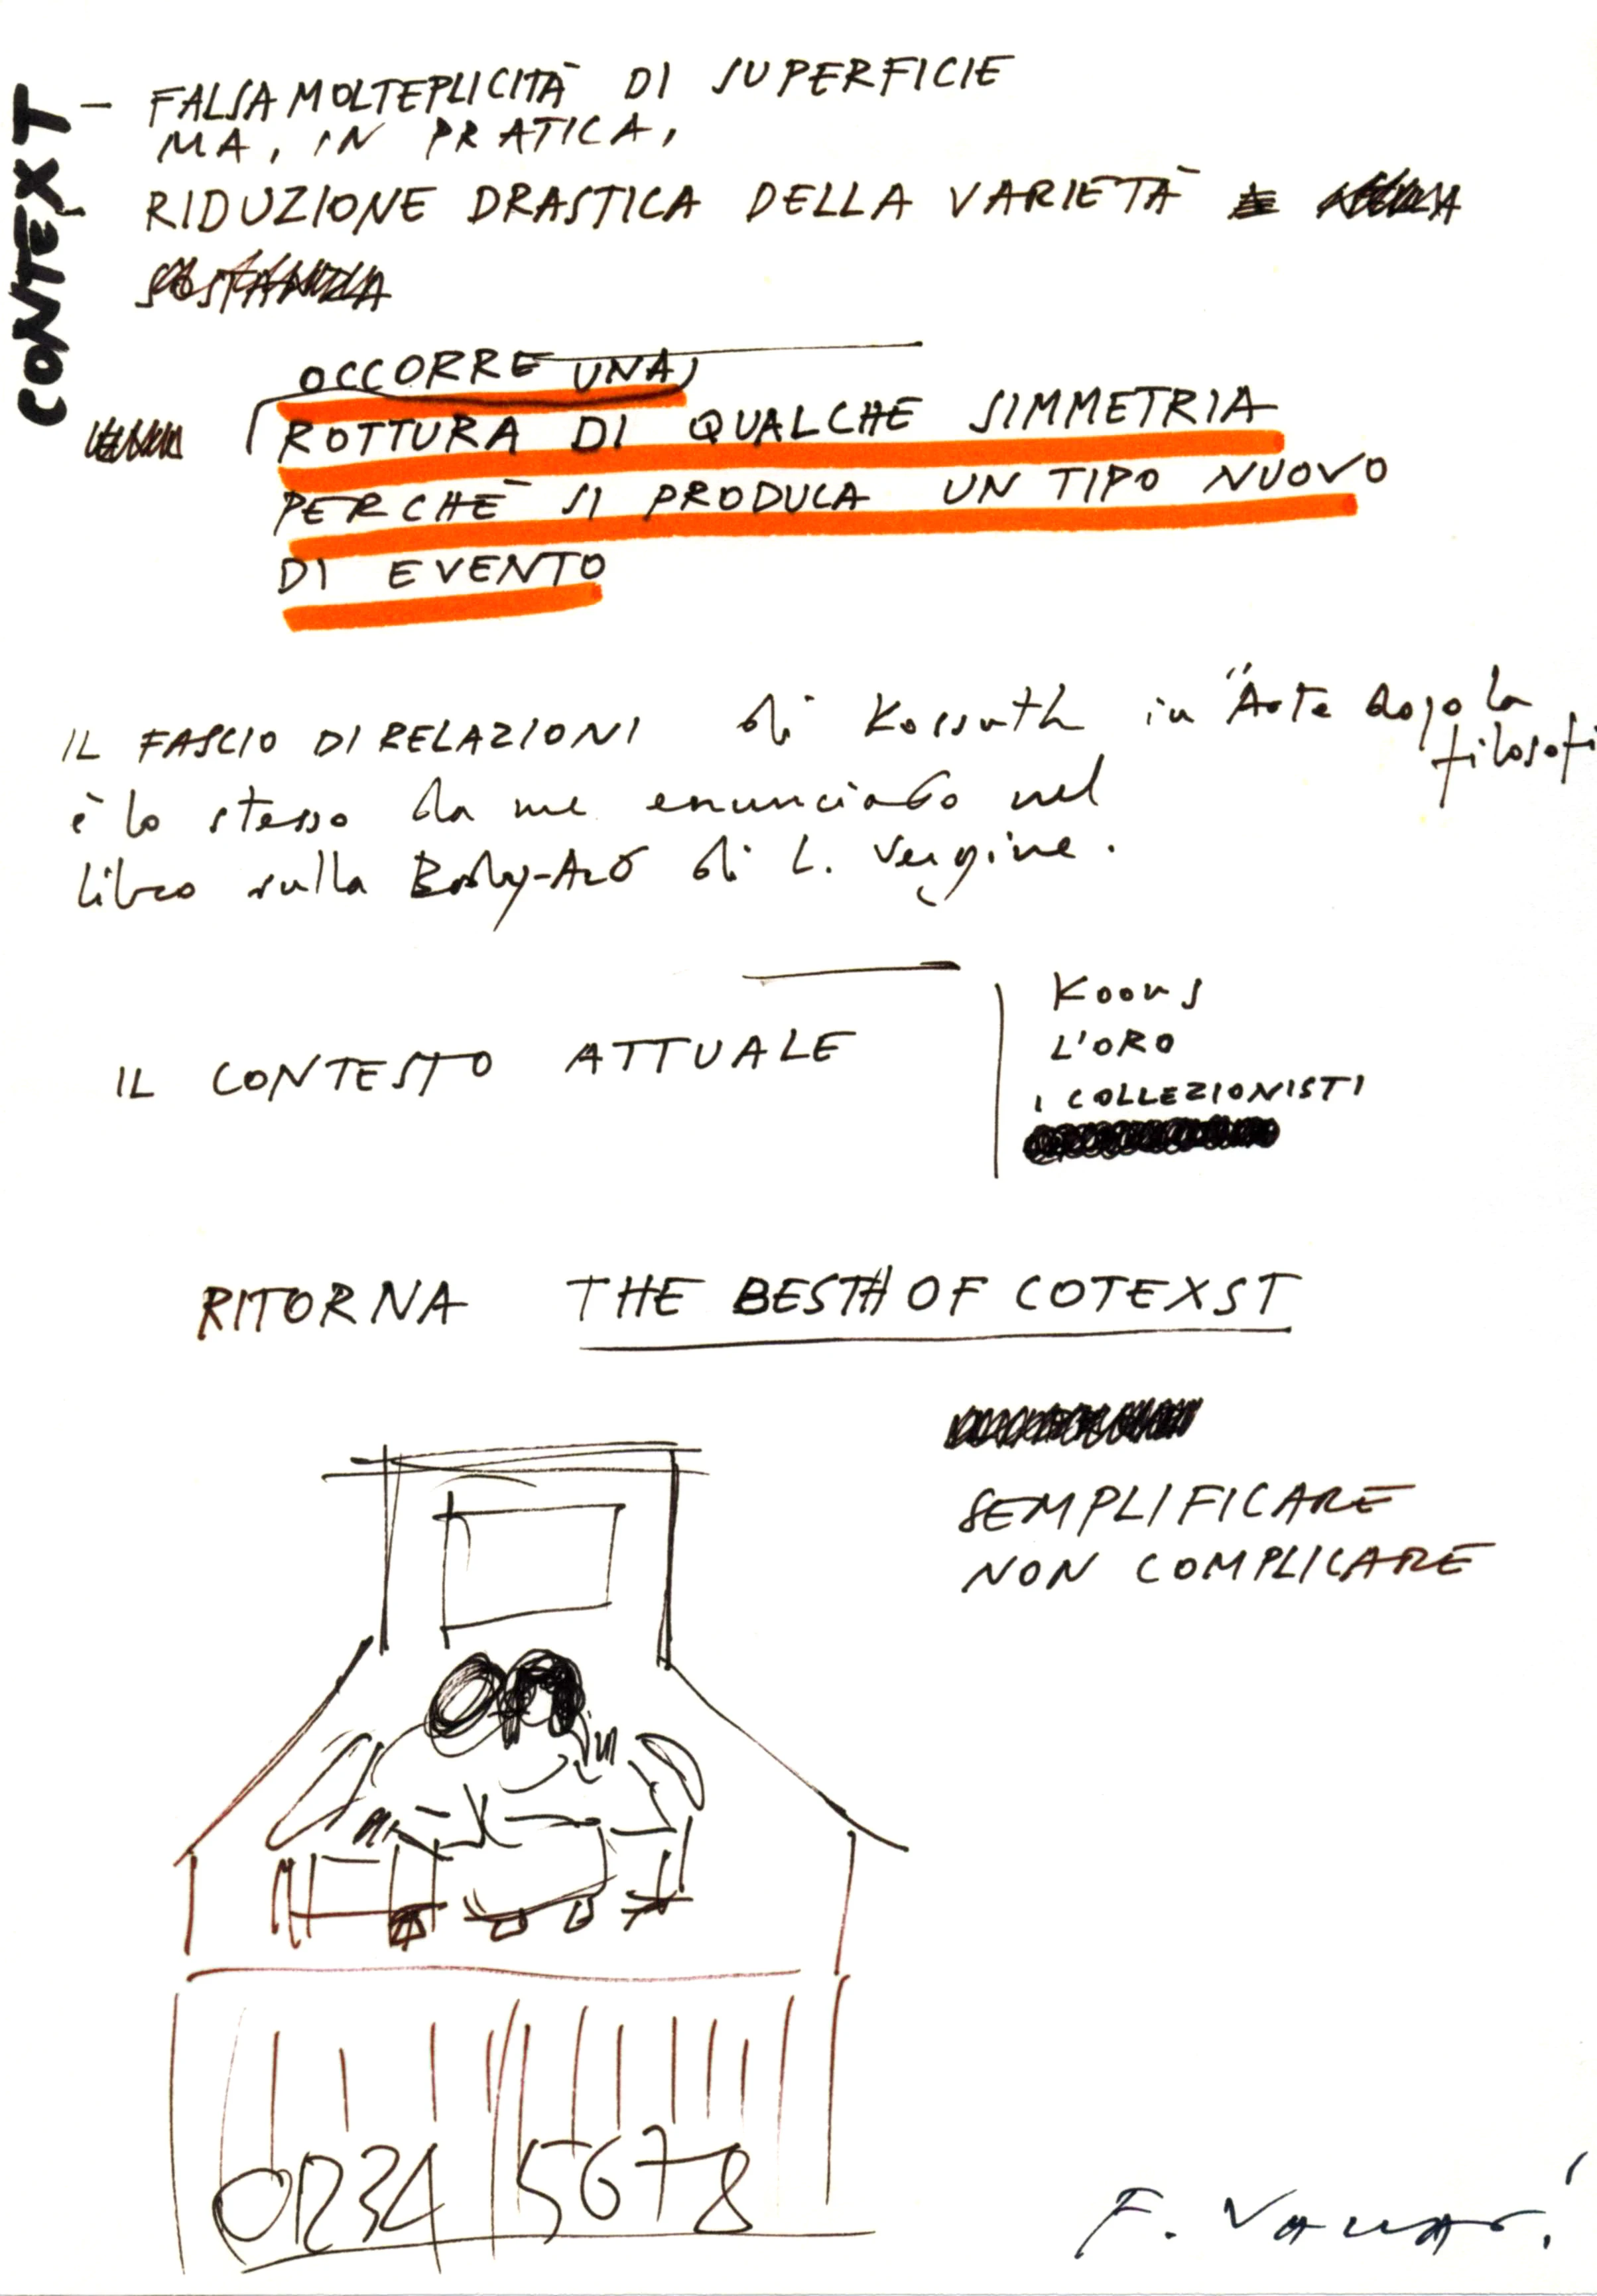 CONTEXT
– FALSA MOLTEPLICITÀ DI SUPERFICIE
MA, IN PRATICA,
RIDUZIONE DRASTICA DELLA VARIETÀ
SOSTANZA
OCCORRE UNA
ROTTURA DI QUALCHE SIMMETRIA
PERCHÈ SI PRODUCA UN TIPO NUOVO
DI EVENTO
IL FASCIO DI RELAZIONI di Kossuth in "Arte dopo la
filosofi
è lo stesso da me enunciato nel
libro sulla Body-Art di L. Vergine.
IL CONTESTO ATTUALE
Koons
L'ORO
I COLLEZIONISTI
RITORNA THE BESTH OF COTEXST
SEMPLIFICARE
NON COMPLICARE
01234 5678
F. Vaccari